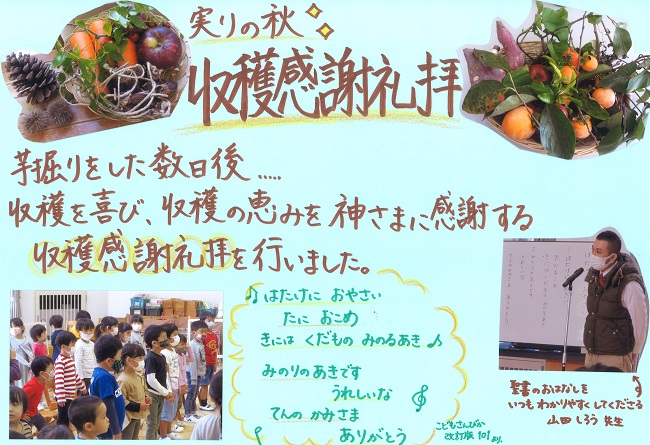 実りの秋
収穫感謝礼拝
芋掘りをした数日後.....
収穫を喜び、収穫の恵みを神さまに感謝する
収穫感謝礼拝を行いました。
♪はたけに おやさい
たに おこめ
きには くだもの みのるあき♪
みのりのあきです
うれしいな
てんの かみさま
ありがとう
こどもさんびか
改訂版 101より。
聖書のおはなしを
いつも わかりやすく してくださる
山田 しろう 先生